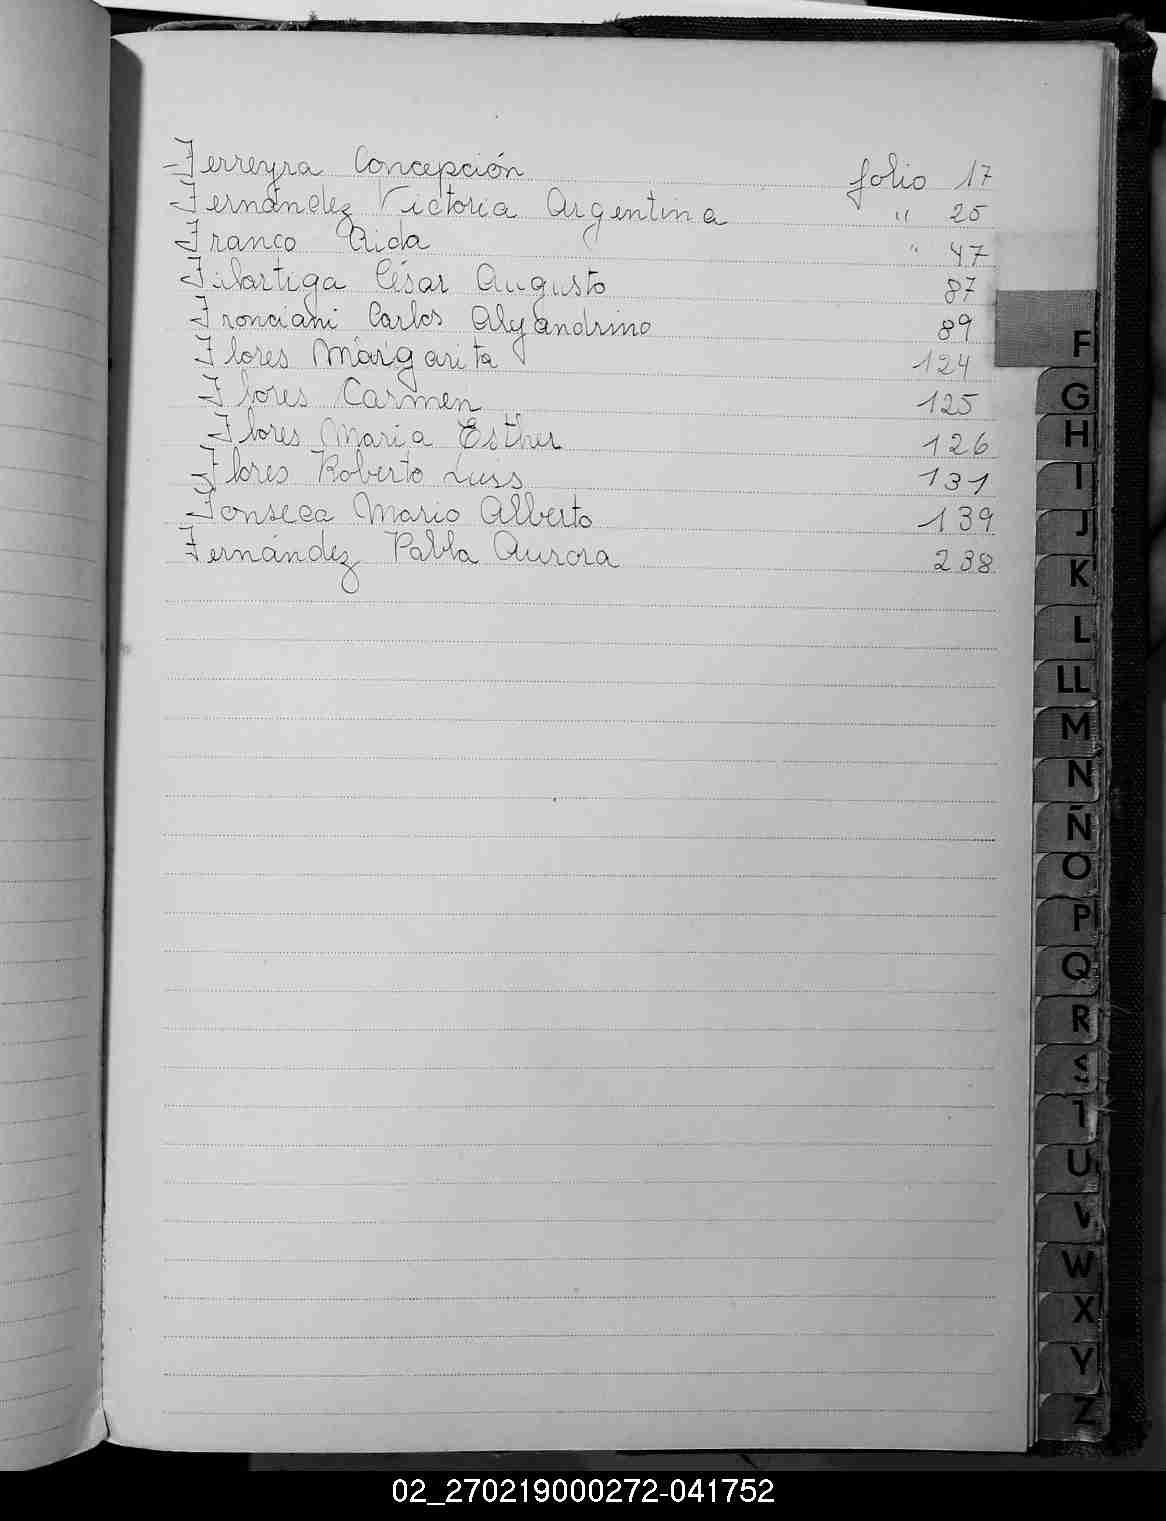 Ferreyra Concepción folio 17
Fernández Victoria Argentina " 25
Franco Aida " 47
Filártiga César Augusto 87
Fronciani Carlos Alejandrino 89
Flores Margarita 124
Flores Carmen 125
Flores María Esther 126
Flores Roberto Luiss 131
Fonseca Mario Alberto 139
Fernández Pabla Aurora 238
F
G
H
I
J
K
L
LL
M
N
Ñ
O
P
Q
R
S
T
U
V
W
X
Y
Z
02_270219000272-041752